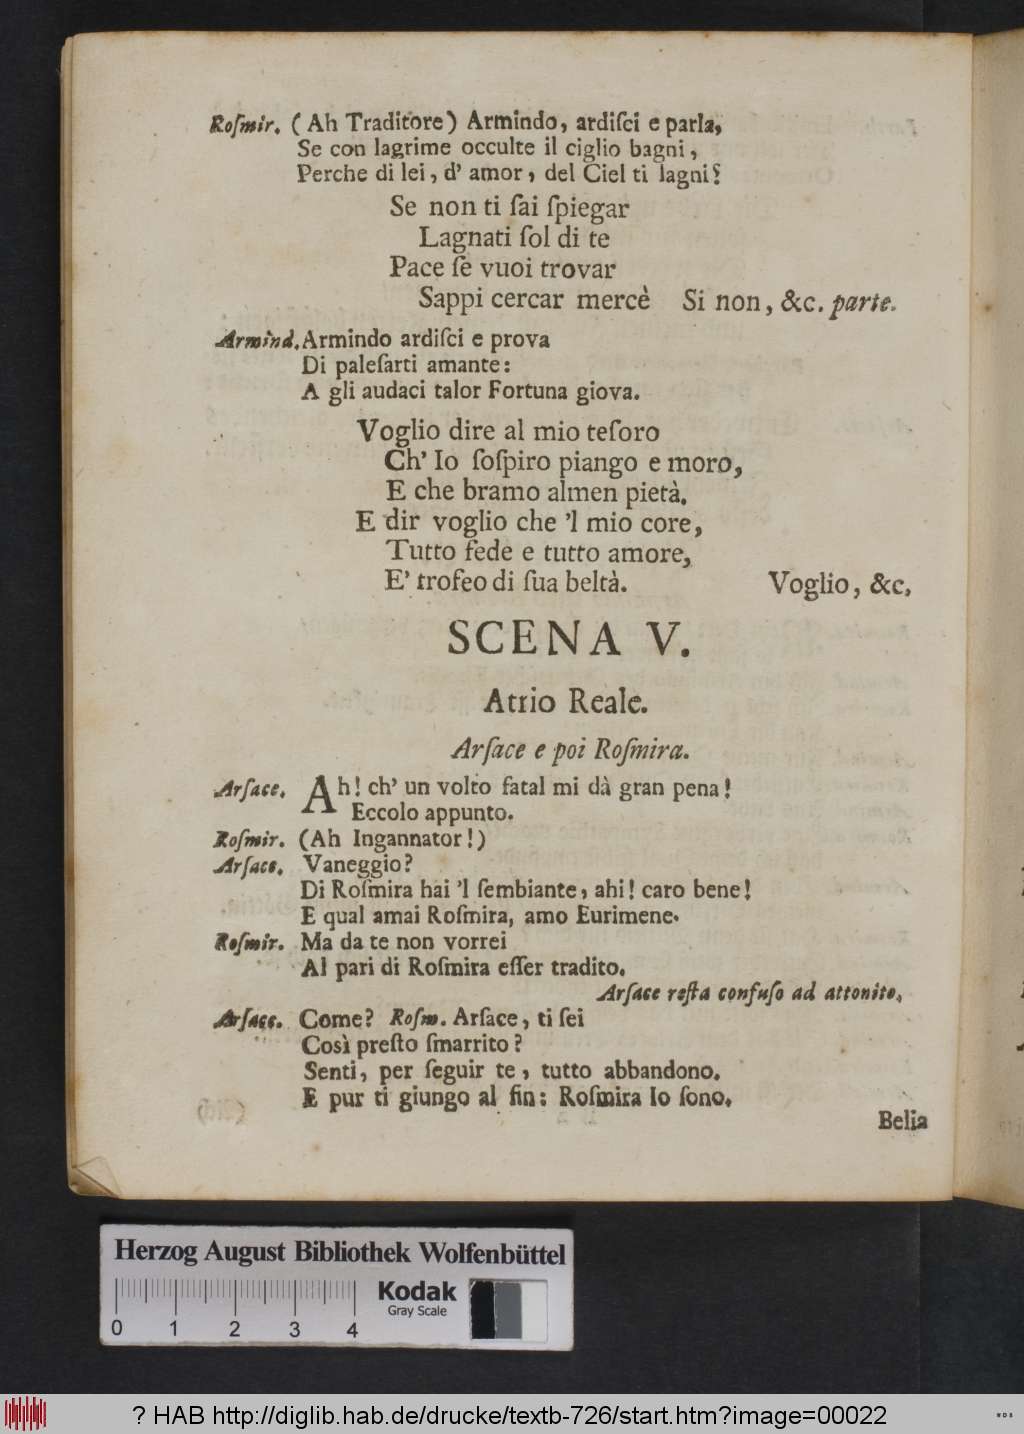 Roſmir. (Ah Traditore) Armindo, ardiſci e parla,
Se con lagrime occulte il ciglio bagni,
Perche di lei, d' amor, del Ciel ti lagni?
Se non ti ſai ſpiegar
Lagnati ſol di te
Pace ſe vuoi trovar
Sappi cercar mercè Si non, &c. parte.
Armind. Armindo ardiſci e prova
Di paleſarti amante:
A gli audaci talor Fortuna giova.
Voglio dire al mio teſoro
Ch' Io ſoſpiro piango e moro,
E che bramo almen pietà.
E dir voglio che 'l mio core,
Tutto fede e tutto amore,
E' trofeo di ſua beltà. Voglio, &c.
SCENA V.
Atrio Reale.
Arſace e poi Roſmira.
Arſace. Ah! ch' un volto fatal mi dà gran pena!
Eccolo appunto.
Roſmir. (Ah Ingannator!)
Arſace. Vaneggio?
Di Roſmira hai 'l ſembiante, ahi! caro bene!
E qual amai Roſmira, amo Eurimene.
Roſmir. Ma da te non vorrei
Al pari di Roſmira eſſer tradito.
Arſace reſta confuſo ad attonito.
Arſace. Come? Roſm. Arſace, ti ſei
Così preſto ſmarrito?
Senti, per ſeguir te, tutto abbandono.
E pur ti giungo al fin: Roſmira Io ſono.
Belia
Herzog August Bibliothek Wolfenbüttel
Kodak
Gray Scale
0 1 2 3 4
? HAB http://diglib.hab.de/drucke/textb-726/start.htm?image=00022